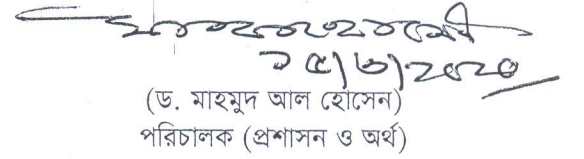 ১৫/৬/২০২০
(ড. মাহমুদ আল হোসেন)
পরিচালক (প্রশাসন ও অর্থ)